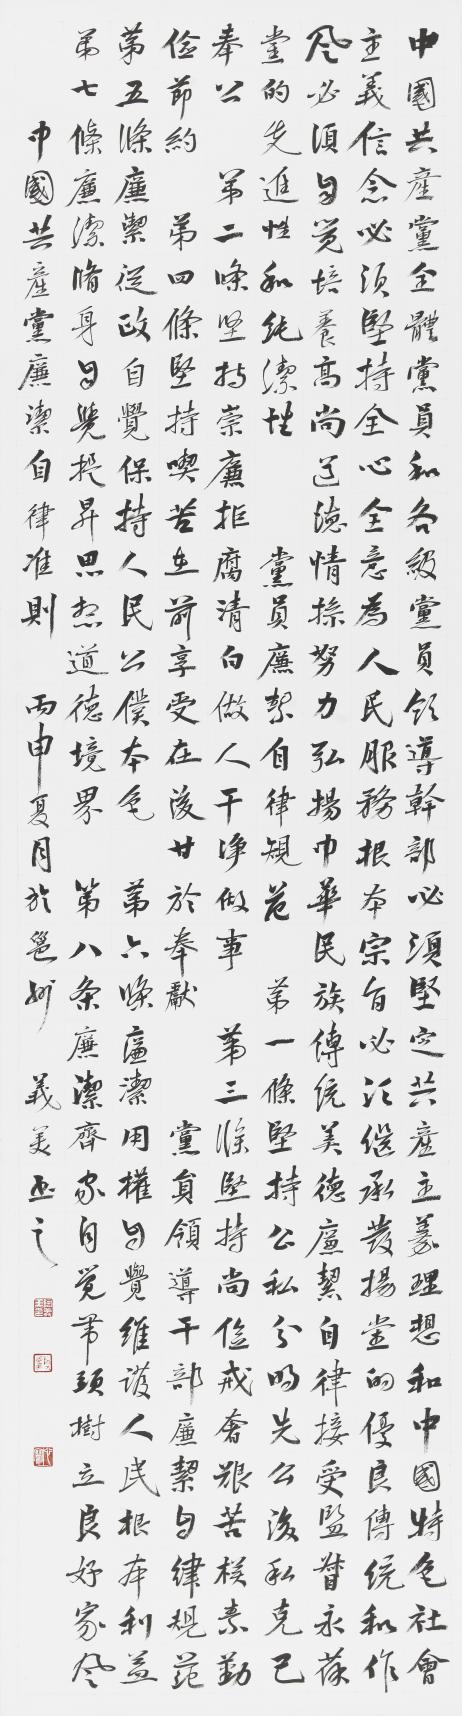 中國共產黨全體黨員和各級黨員領導幹部必須堅定共產主義理想和中國特色社會
主義信念必須堅持全心全意為人民服務根本宗旨必須繼承發揚黨的優良傳統和作
风必須自覺培養高尚道德情操努力弘揚中華民族傳統美德廉潔自律接受監督永葆
黨的先進性和純潔性 黨員廉潔自律規范 第一條堅持公私分明先公後私克己
奉公 第二條堅持崇廉拒腐清白做人干净做事 第三條堅持尚儉戒奢艱苦樸素勤
儉節約 第四條堅持喫苦在前享受在後甘於奉獻 黨員領導干部廉潔自律規范
第五條廉潔從政自覺保持人民公僕本色 第六條廉潔用權自覺維護人民根本利益
第七條廉潔脩身自覺提昇思想道德境界 第八条廉潔齊家自觉带頭樹立良好家风
中國共產黨廉潔自律准則 丙申夏月於邕州 義美書之